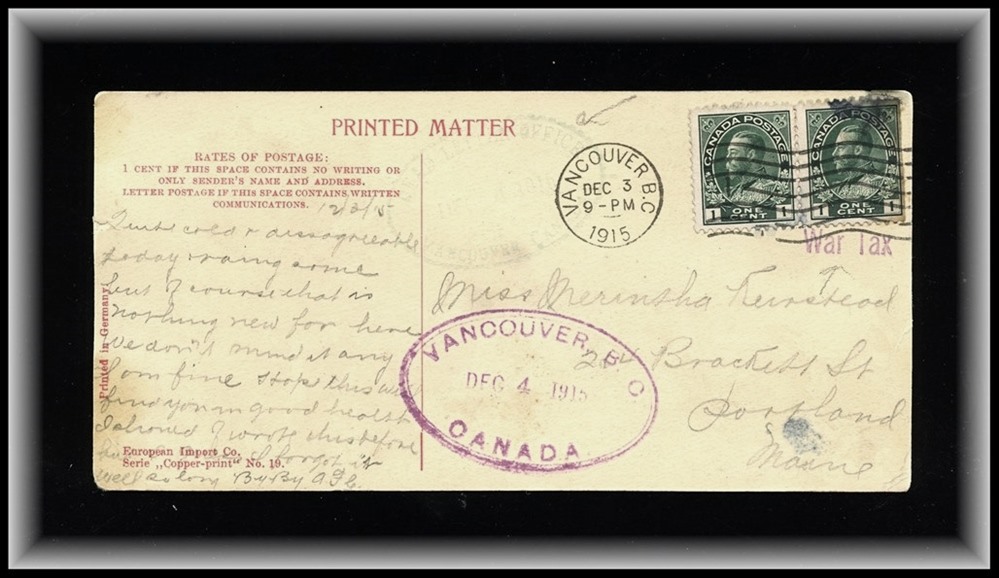 PRINTED MATTER
RATES OF POSTAGE:
1 CENT IF THIS SPACE CONTAINS NO WRITING OR
ONLY SENDER'S NAME AND ADDRESS.
LETTER POSTAGE IF THIS SPACE CONTAINS WRITTEN
COMMUNICATIONS.
12/3/15
Quite cold & dissagreeable
today raining some
but of course that is
nothing new for here
We don't mind it any
I am fine Hope this will
find you in good health
I should of wrote this before
I forgot it
well so long By By
Printed in Germany
European Import Co.
Serie „Copper-print" No. 19.
VANCOUVER B.C.
DEC 3
9-PM
1915
CANADA POSTAGE
1 ONE CENT 1
CANADA POSTAGE
1 ONE CENT 1
War Tax
Miss
Brackett St
Portland
Maine
VANCOUVER, B.C
DEC 4 1915
CANADA
OFFICE
VANCOUVER